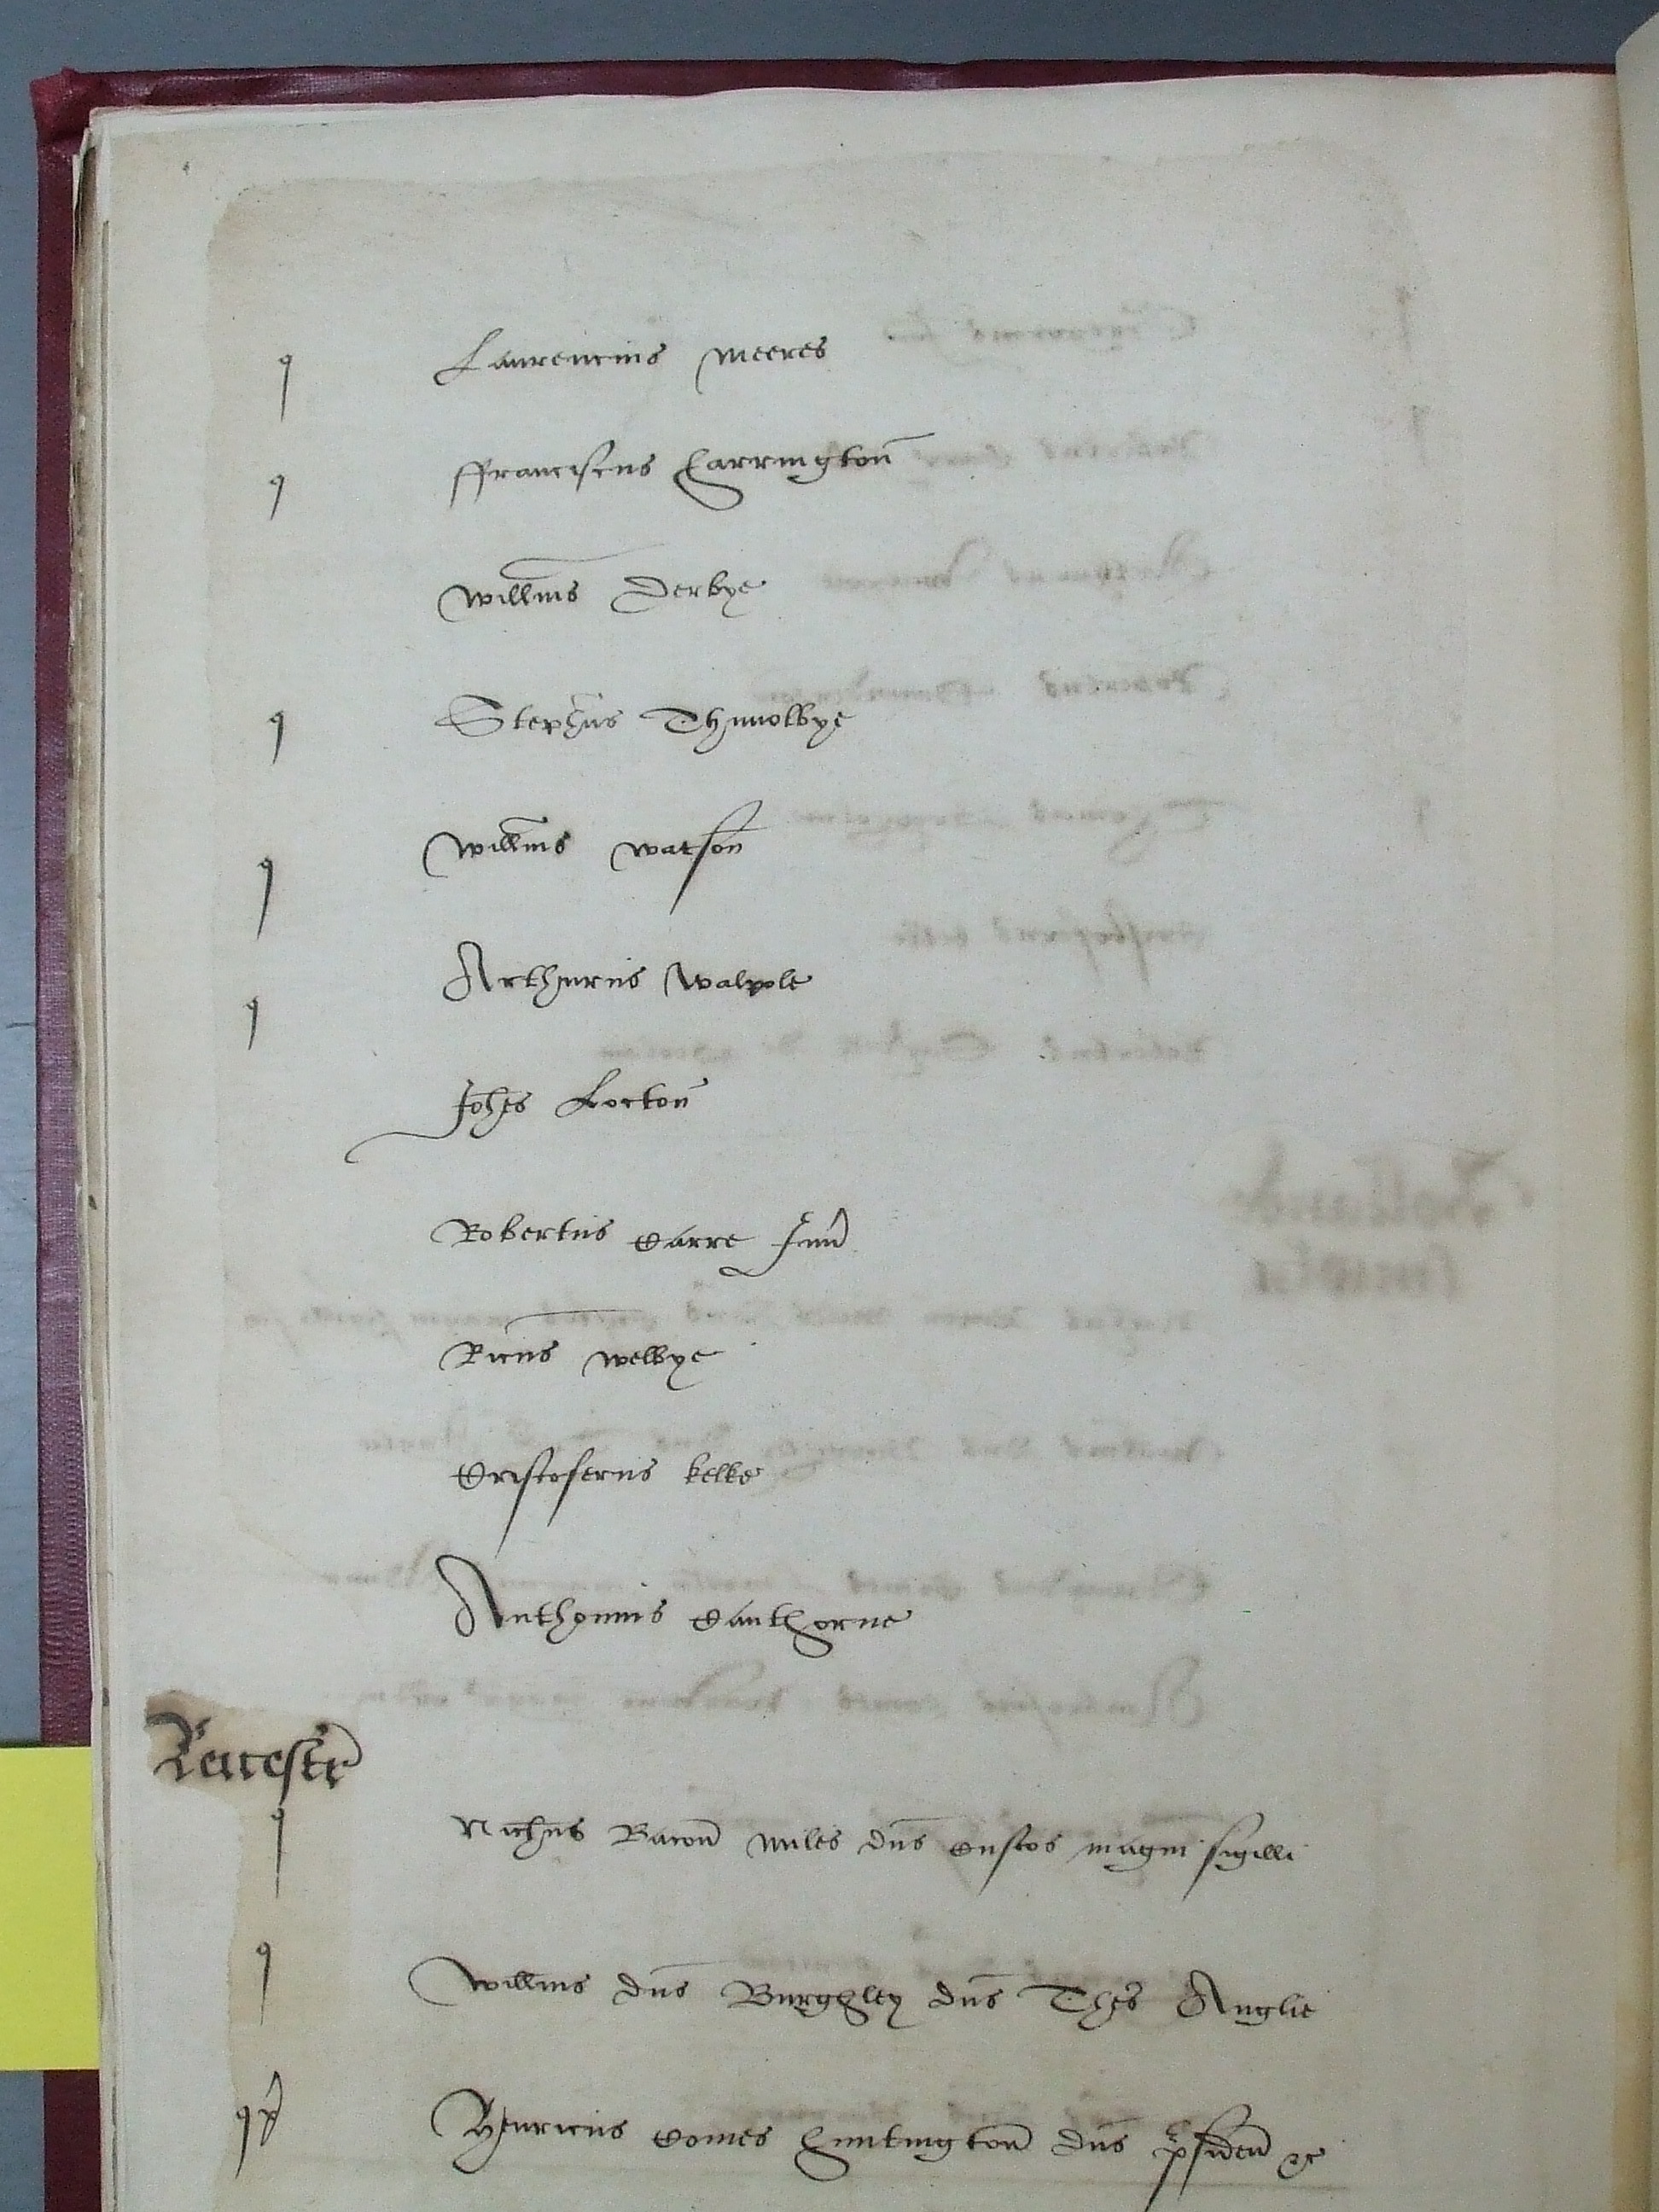 q Laurencius Meeres
q ffranciscus Harrington
Willms Derbye
q Stephus Thymolbye
q Willms Watson
q Arthurus Walpole
Johes Locton
Robertus Carre Jun
Ricus Welbye
Cristoferus Kelke
Anthonius Cauthorne
Leicestr
q Nichus Bacon miles dns Custos magni sigilli
q Willms dns Burghley dns Thes Anglie
q Henricus Comes Huntington dns psiden &c